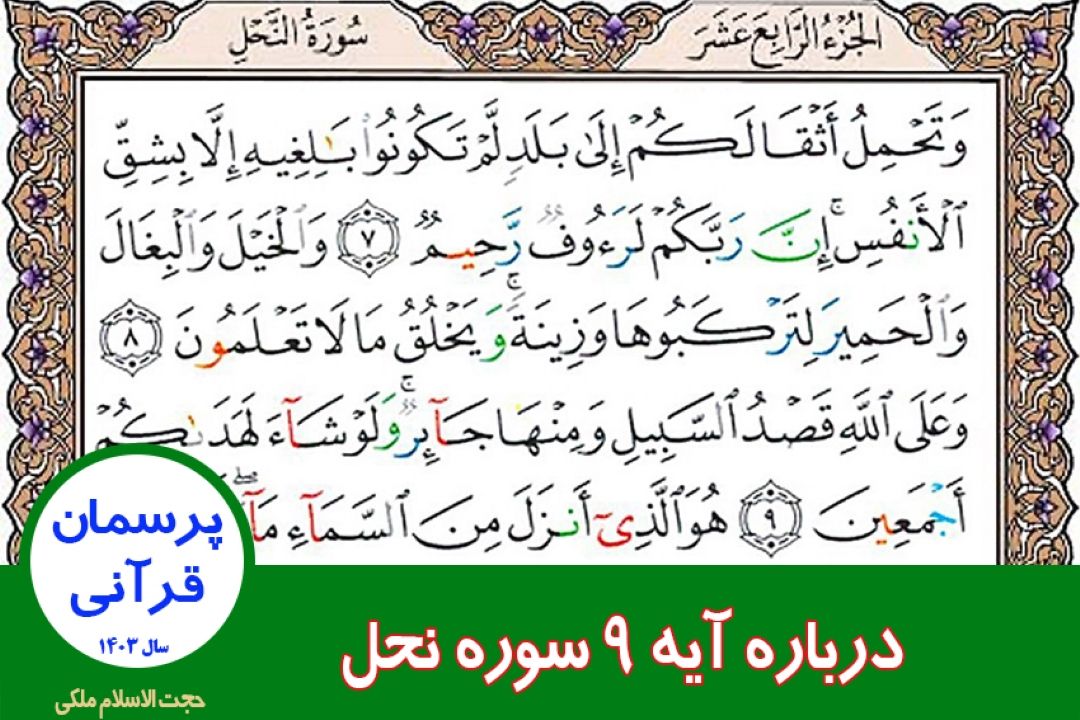 الجُزْءُ الرَّابِعَ عَشَرَ
سُورَةُ النَّحْلِ
وَتَحْمِلُ أَثْقَالَكُمْ إِلَىٰ بَلَدٍ لَّمْ تَكُونُوا۟ بَـٰلِغِيهِ إِلَّا بِشِقِّ
ٱلْأَنفُسِ ۚ إِنَّ رَبَّكُمْ لَرَءُوفٌ رَّحِيمٌ ٧ وَٱلْخَيْلَ وَٱلْبِغَالَ
وَٱلْحَمِيرَ لِتَرْكَبُوهَا وَزِينَةً ۚ وَيَخْلُقُ مَا لَا تَعْلَمُونَ ٨
وَعَلَى ٱللَّهِ قَصْدُ ٱلسَّبِيلِ وَمِنْهَا جَآئِرٌ ۚ وَلَوْ شَآءَ لَهَدَىٰكُمْ
أَجْمَعِينَ ٩ هُوَ ٱلَّذِىٓ أَنزَلَ مِنَ ٱلسَّمَآءِ مَآءً ۖ
پرسمان
قرآنی
سال ۱۴۰۳
درباره آیه ۹ سوره نحل
حجت الاسلام ملکی